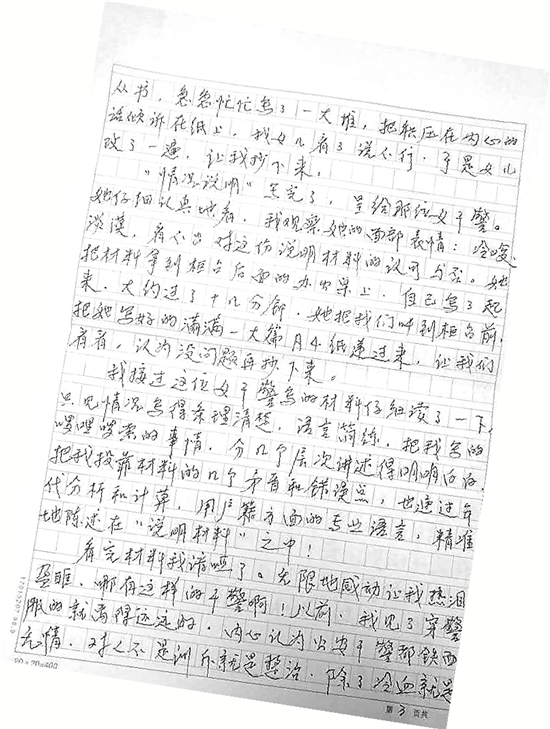 从书，急急忙忙写了一大堆，把积压在内心的
话倾诉在纸上，我女儿看了说不行．于是女儿
改了一遍，让我抄下来．
"情况说明"写完了，呈给那位女干警。
她仔细认真地看．我观察她的面部表情：冷峻、
淡漠，看不出对这份说明材料的认可与否。她
把材料拿到柜台后面的办公桌上．自己写了起
来．大约过了十几分钟．她把我们叫到柜台前．
把她写好的满满一大篇A4纸递过来，让我们
看看，认为没问题再抄下来。
我接过这位女干警写的材料仔细读了一下，
只见情况写得条理清楚，语言简练．把我写的
啰哩啰索的事情．分几个层次讲述得明明白白．
把我投靠材料的几个矛盾和错误点，也通过年
代分析和计算，用户籍方面的专业语言，精准
地陈述在"说明材料"之中！
看完材料我语噎了。无限地感动让我热泪
盈眶．哪有这样的干警啊！以前．我见了穿警
服的就离得远远的．内心认为公安干警都铁面
无情．对人不是训斥就是整治．除了冷血就是
20×20=400
第3页共